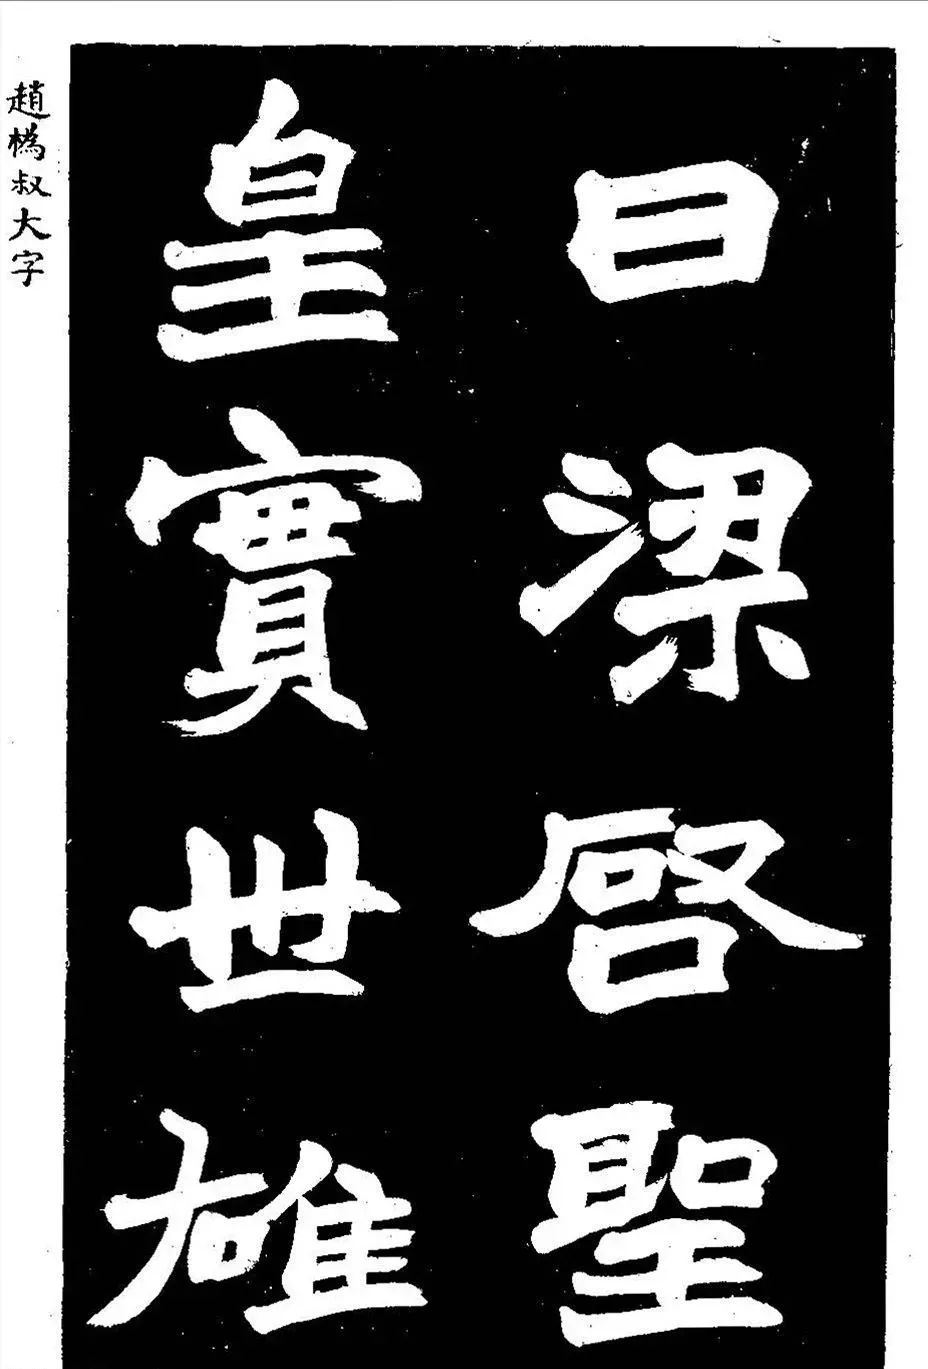 曰梁啓聖
皇實世雄
趙撝叔大字